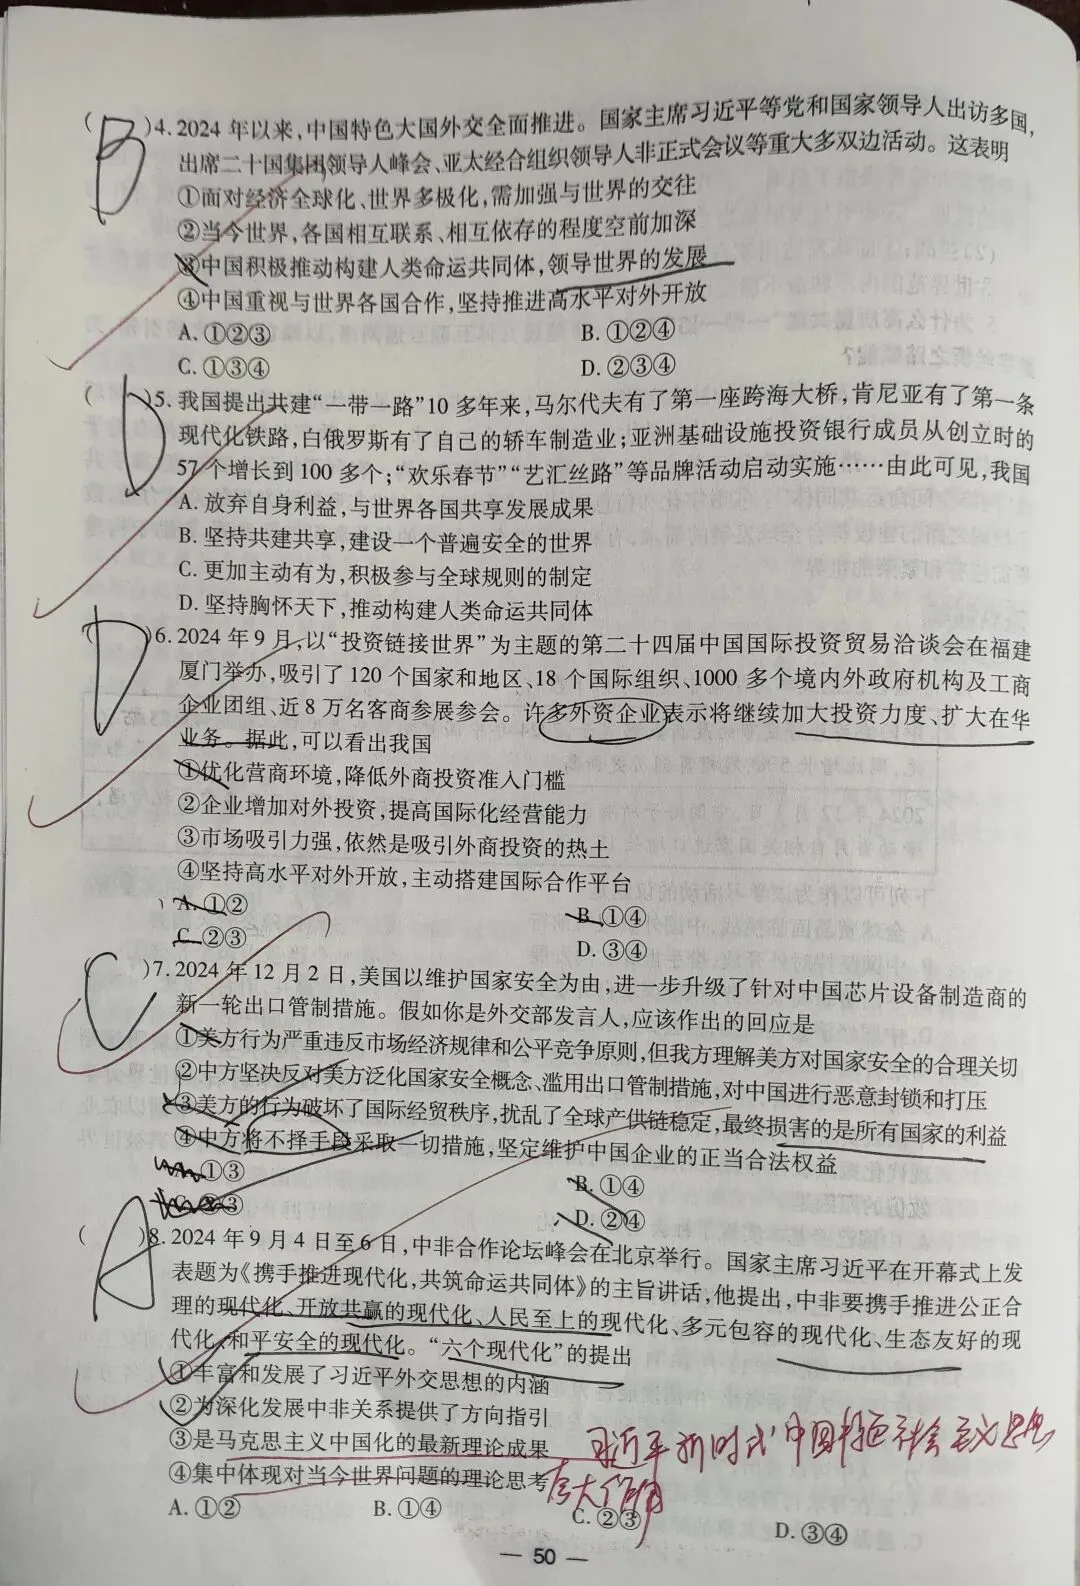 B
( )4. 2024 年以来,中国特色大国外交全面推进。国家主席习近平等党和国家领导人出访多国,
出席二十国集团领导人峰会、亚太经合组织领导人非正式会议等重大多双边活动。这表明
①面对经济全球化、世界多极化,需加强与世界的交往
②当今世界,各国相互联系、相互依存的程度空前加深
③中国积极推动构建人类命运共同体,领导世界的发展
④中国重视与世界各国合作,坚持推进高水平对外开放
A. ①②③ B. ①②④
C. ①③④ D. ②③④
D
( )5. 我国提出共建“一带一路”10 多年来,马尔代夫有了第一座跨海大桥,肯尼亚有了第一条
现代化铁路,白俄罗斯有了自己的轿车制造业;亚洲基础设施投资银行成员从创立时的
57 个增长到 100 多个;“欢乐春节”“艺汇丝路”等品牌活动启动实施……由此可见,我国
A. 放弃自身利益,与世界各国共享发展成果
B. 坚持共建共享,建设一个普遍安全的世界
C. 更加主动有为,积极参与全球规则的制定
D. 坚持胸怀天下,推动构建人类命运共同体
D
)6. 2024 年 9 月,以“投资链接世界”为主题的第二十四届中国国际投资贸易洽谈会在福建
厦门举办,吸引了 120 个国家和地区、18 个国际组织、1000 多个境内外政府机构及工商
企业团组、近 8 万名客商参展参会。许多外资企业表示将继续加大投资力度、扩大在华
业务。据此,可以看出我国
①优化营商环境,降低外商投资准入门槛
②企业增加对外投资,提高国际化经营能力
③市场吸引力强,依然是吸引外商投资的热土
④坚持高水平对外开放,主动搭建国际合作平台
A. ①② B. ①④
C. ②③ D. ③④
C
)7. 2024 年 12 月 2 日,美国以维护国家安全为由,进一步升级了针对中国芯片设备制造商的
新一轮出口管制措施。假如你是外交部发言人,应该作出的回应是
①美方行为严重违反市场经济规律和公平竞争原则,但我方理解美方对国家安全的合理关切
②中方坚决反对美方泛化国家安全概念、滥用出口管制措施,对中国进行恶意封锁和打压
③美方的行为破坏了国际经贸秩序,扰乱了全球产供链稳定,最终损害的是所有国家的利益
④中方将不择手段采取一切措施,坚定维护中国企业的正当合法权益
①③ B. ①④
C. ②③ D. ②④
A
( )8. 2024 年 9 月 4 日至 6 日,中非合作论坛峰会在北京举行。国家主席习近平在开幕式上发
表题为《携手推进现代化,共筑命运共同体》的主旨讲话,他提出,中非要携手推进公正合
理的现代化、开放共赢的现代化、人民至上的现代化、多元包容的现代化、生态友好的现
代化、和平安全的现代化。“六个现代化”的提出
①丰富和发展了习近平外交思想的内涵
②为深化发展中非关系提供了方向指引
③是马克思主义中国化的最新理论成果
习近平新时代中国特色社会主义思想
④集中体现对当今世界问题的理论思考
A. ①② B. ①④ C. ②③ D. ③④
— 50 —